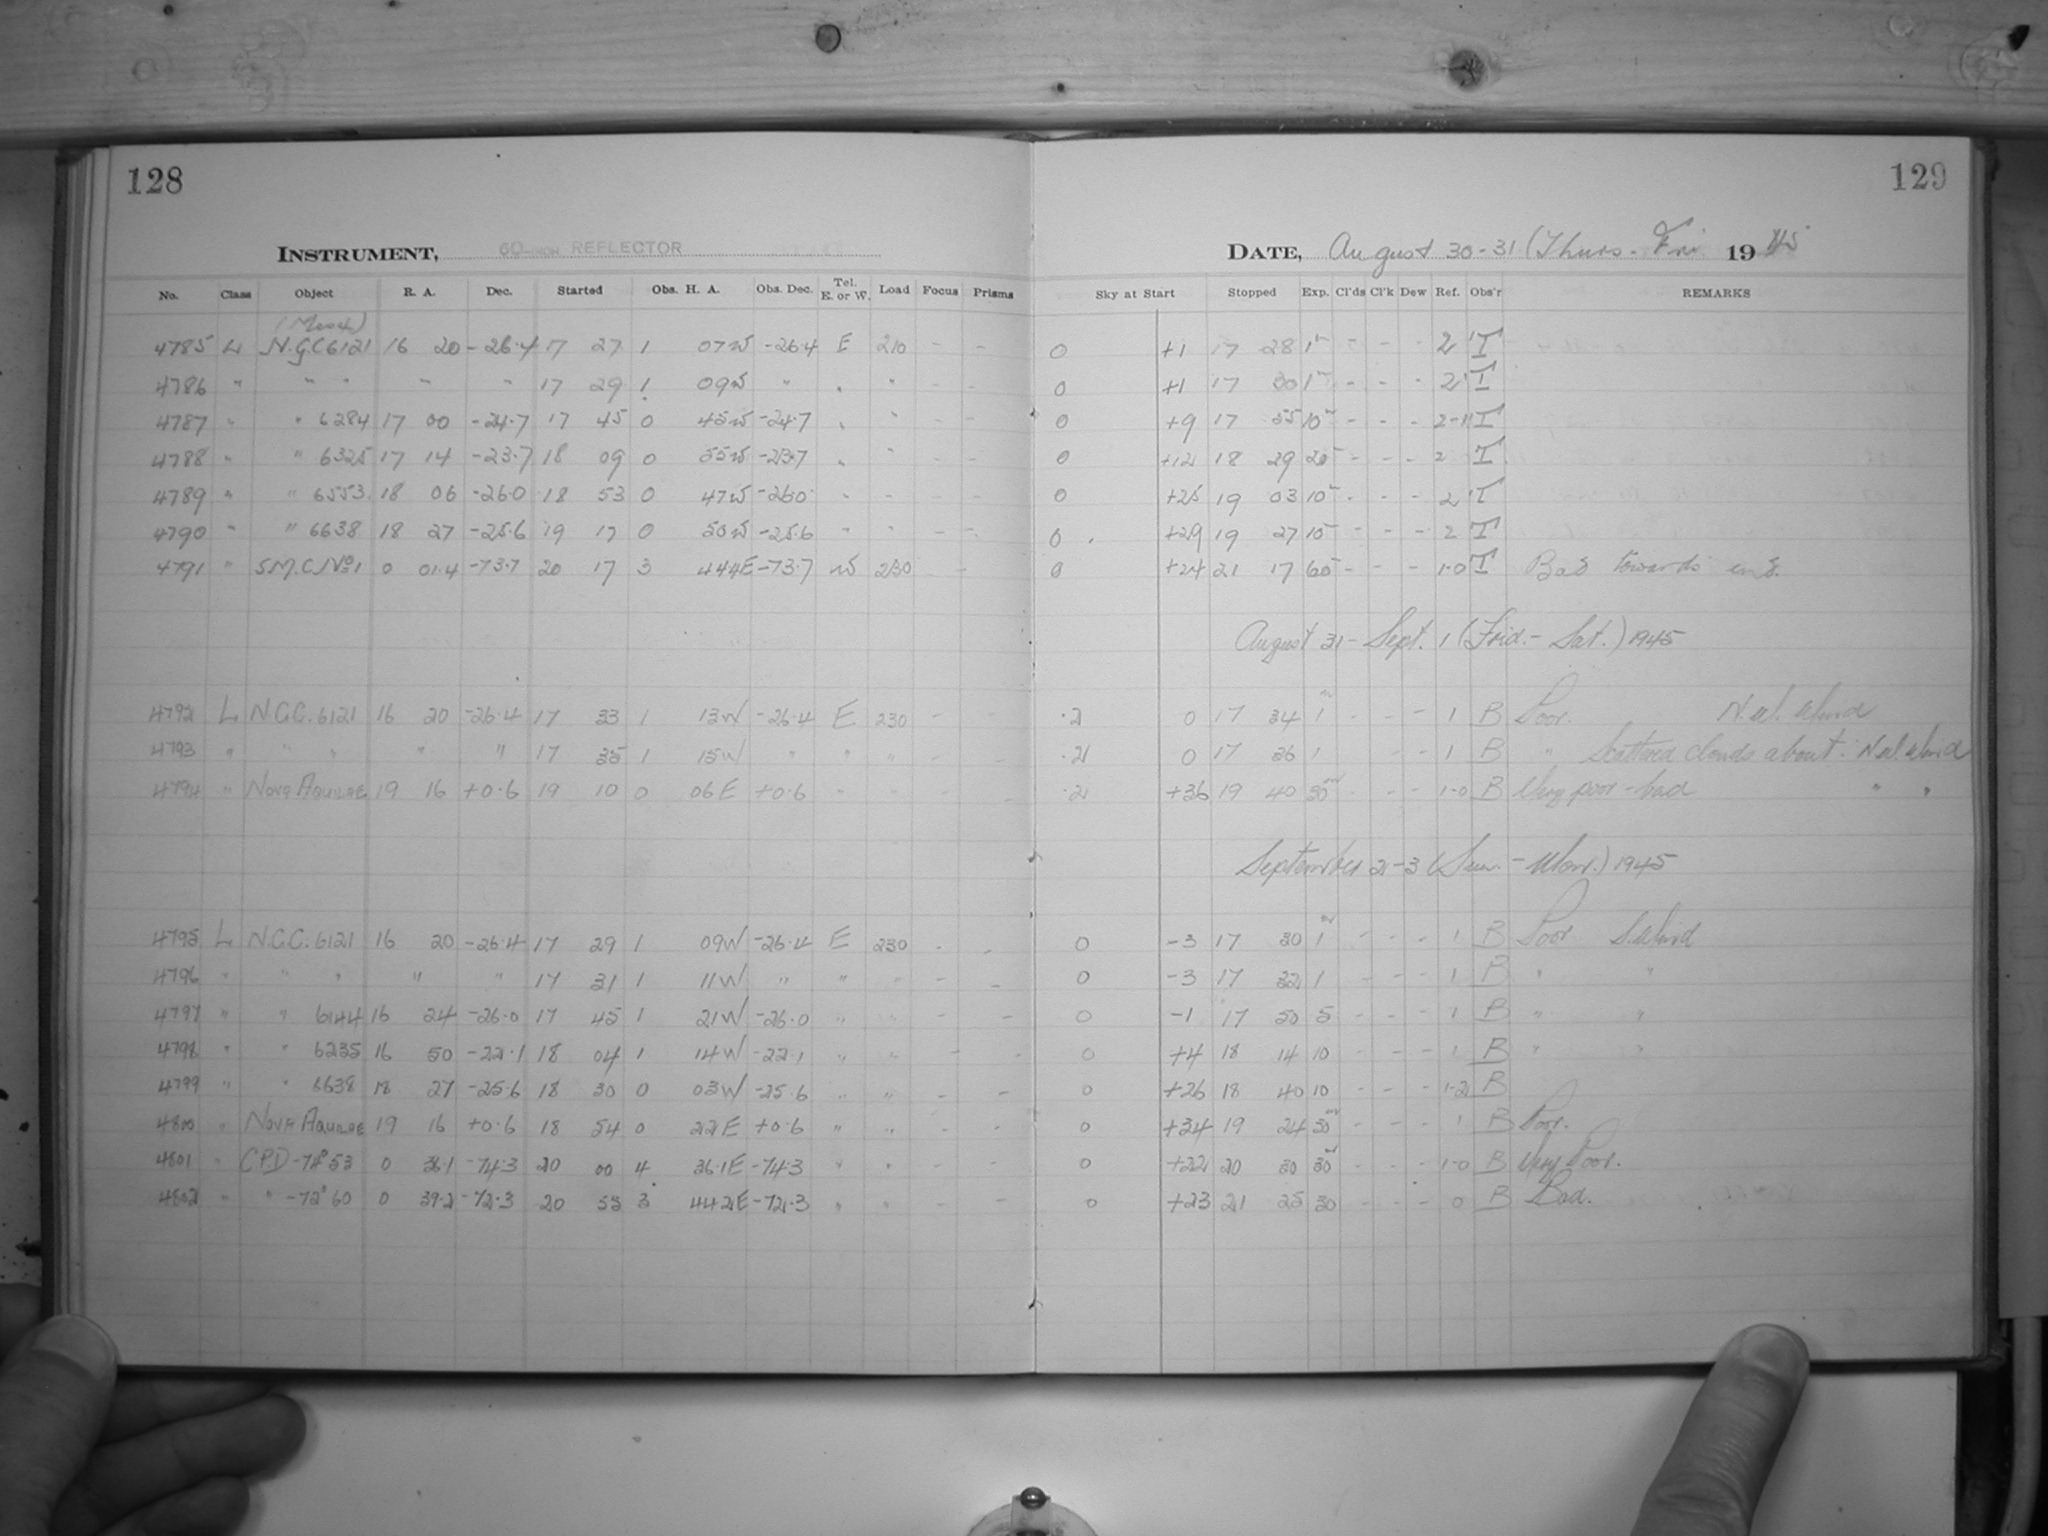 128
129
INSTRUMENT, 60-INCH REFLECTOR
DATE, August 30-31 (Thurs - Fri 1945
No. Class Object R. A. Dec. Started Obs. H. A. Obs. Dec. Tel. E. or W. Load Focus Prisms Sky at Start Stopped Exp. Cl'ds Cl'k Dew Ref. Obs'r REMARKS
4785 L N.G.C 6121 16 20 -26.4 17 27 1 07W -26.4 E 210 - - 0 +1 17 28 1m - - - 2 T
4786 " " " " " 17 29 1 09W " " " - - 0 +1 17 30 1m - - - 2 T
4787 " " 6284 17 00 -24.7 17 45 0 45W -24.7 " " - - 0 +9 17 55 10m - - - 2-1 T
4788 " " 6325 17 14 -23.7 18 09 0 55W -23.7 " " - - 0 +12 18 29 20 - - - 2 T
4789 " " 6553 18 06 -26.0 18 53 0 47W -26.0 " - - - 0 +25 19 03 10 - - - 2 T
4790 " " 6638 18 27 -25.6 19 17 0 50W -25.6 " " - - 0 +29 19 27 10 - - - 2 T
4791 " S.M.C. No 1 0 01.4 -73.7 20 17 3 444E -73.7 W 230 - 0 +24 21 17 60 - - - 1-0 T Bad towards end.
August 31 - Sept. 1 (Frid. - Sat.) 1945
4792 L N.G.C. 6121 16 20 -26.4 17 33 1 13W -26.4 E 230 - - .2 0 17 34 1m - - - 1 B Poor. N.W. Wind
4793 " " " " " 17 35 1 15W " " " - - .2 0 17 36 1 - - 1 B " Scattered clouds about. N.W. Wind
4794 " NOVA AQUILAE 19 16 +0.6 19 10 0 06E +0.6 " " - - .2 +36 19 40 30m - - - 1-0 B Very poor - bad " "
September 2-3 (Sun. - Mon.) 1945
4795 L N.G.C. 6121 16 20 -26.4 17 29 1 09W -26.4 E 230 - - 0 -3 17 30 1m - - - 1 B Poor S. Wind
4796 " " " " " 17 31 1 11W " " " - - 0 -3 17 32 1 - - - 1 B " "
4797 " " 6144 16 24 -26.0 17 45 1 21W -26.0 " " - - 0 -1 17 50 5 - - - 1 B " "
4798 " " 6235 16 50 -22.1 18 04 1 14W -22.1 " " - - 0 +4 18 14 10 - - - 1 B " "
4799 " " 6638 18 27 -25.6 18 30 0 03W -25.6 " " - - 0 +26 18 40 10 - - - 1-2 B
4800 " NOVA AQUILAE 19 16 +0.6 18 54 0 22E +0.6 " " - - 0 +34 19 24 30m - - - 1 B Poor.
4801 " CPD -74°53 0 36.1 -74.3 20 00 4 36.1E -74.3 " " - - 0 +22 20 30 30m - - - 1-0 B Very Poor.
4802 " " -72°60 0 39.2 -72.3 20 55 3 442E -72.3 " " - - 0 +23 21 25 30 - - - 0 B Bad.